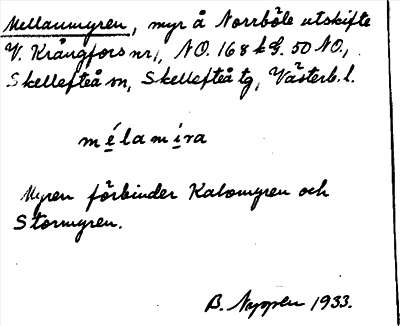 Mellanmyren, myr å Norrböle utskifte
V. Krångfors nr 1, NO. 168 k G. 50 NO,
Skellefteå sn, Skellefteå tg, Västerb. l.
mélamira
Myren förbinder Kalvmyren och
Stormyren.
B. 1933.